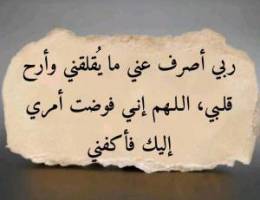 ربي أصرف عني ما يُقلقني وأرح
قلبي، اللهم إني فوضت أمري
إليك فأكفني